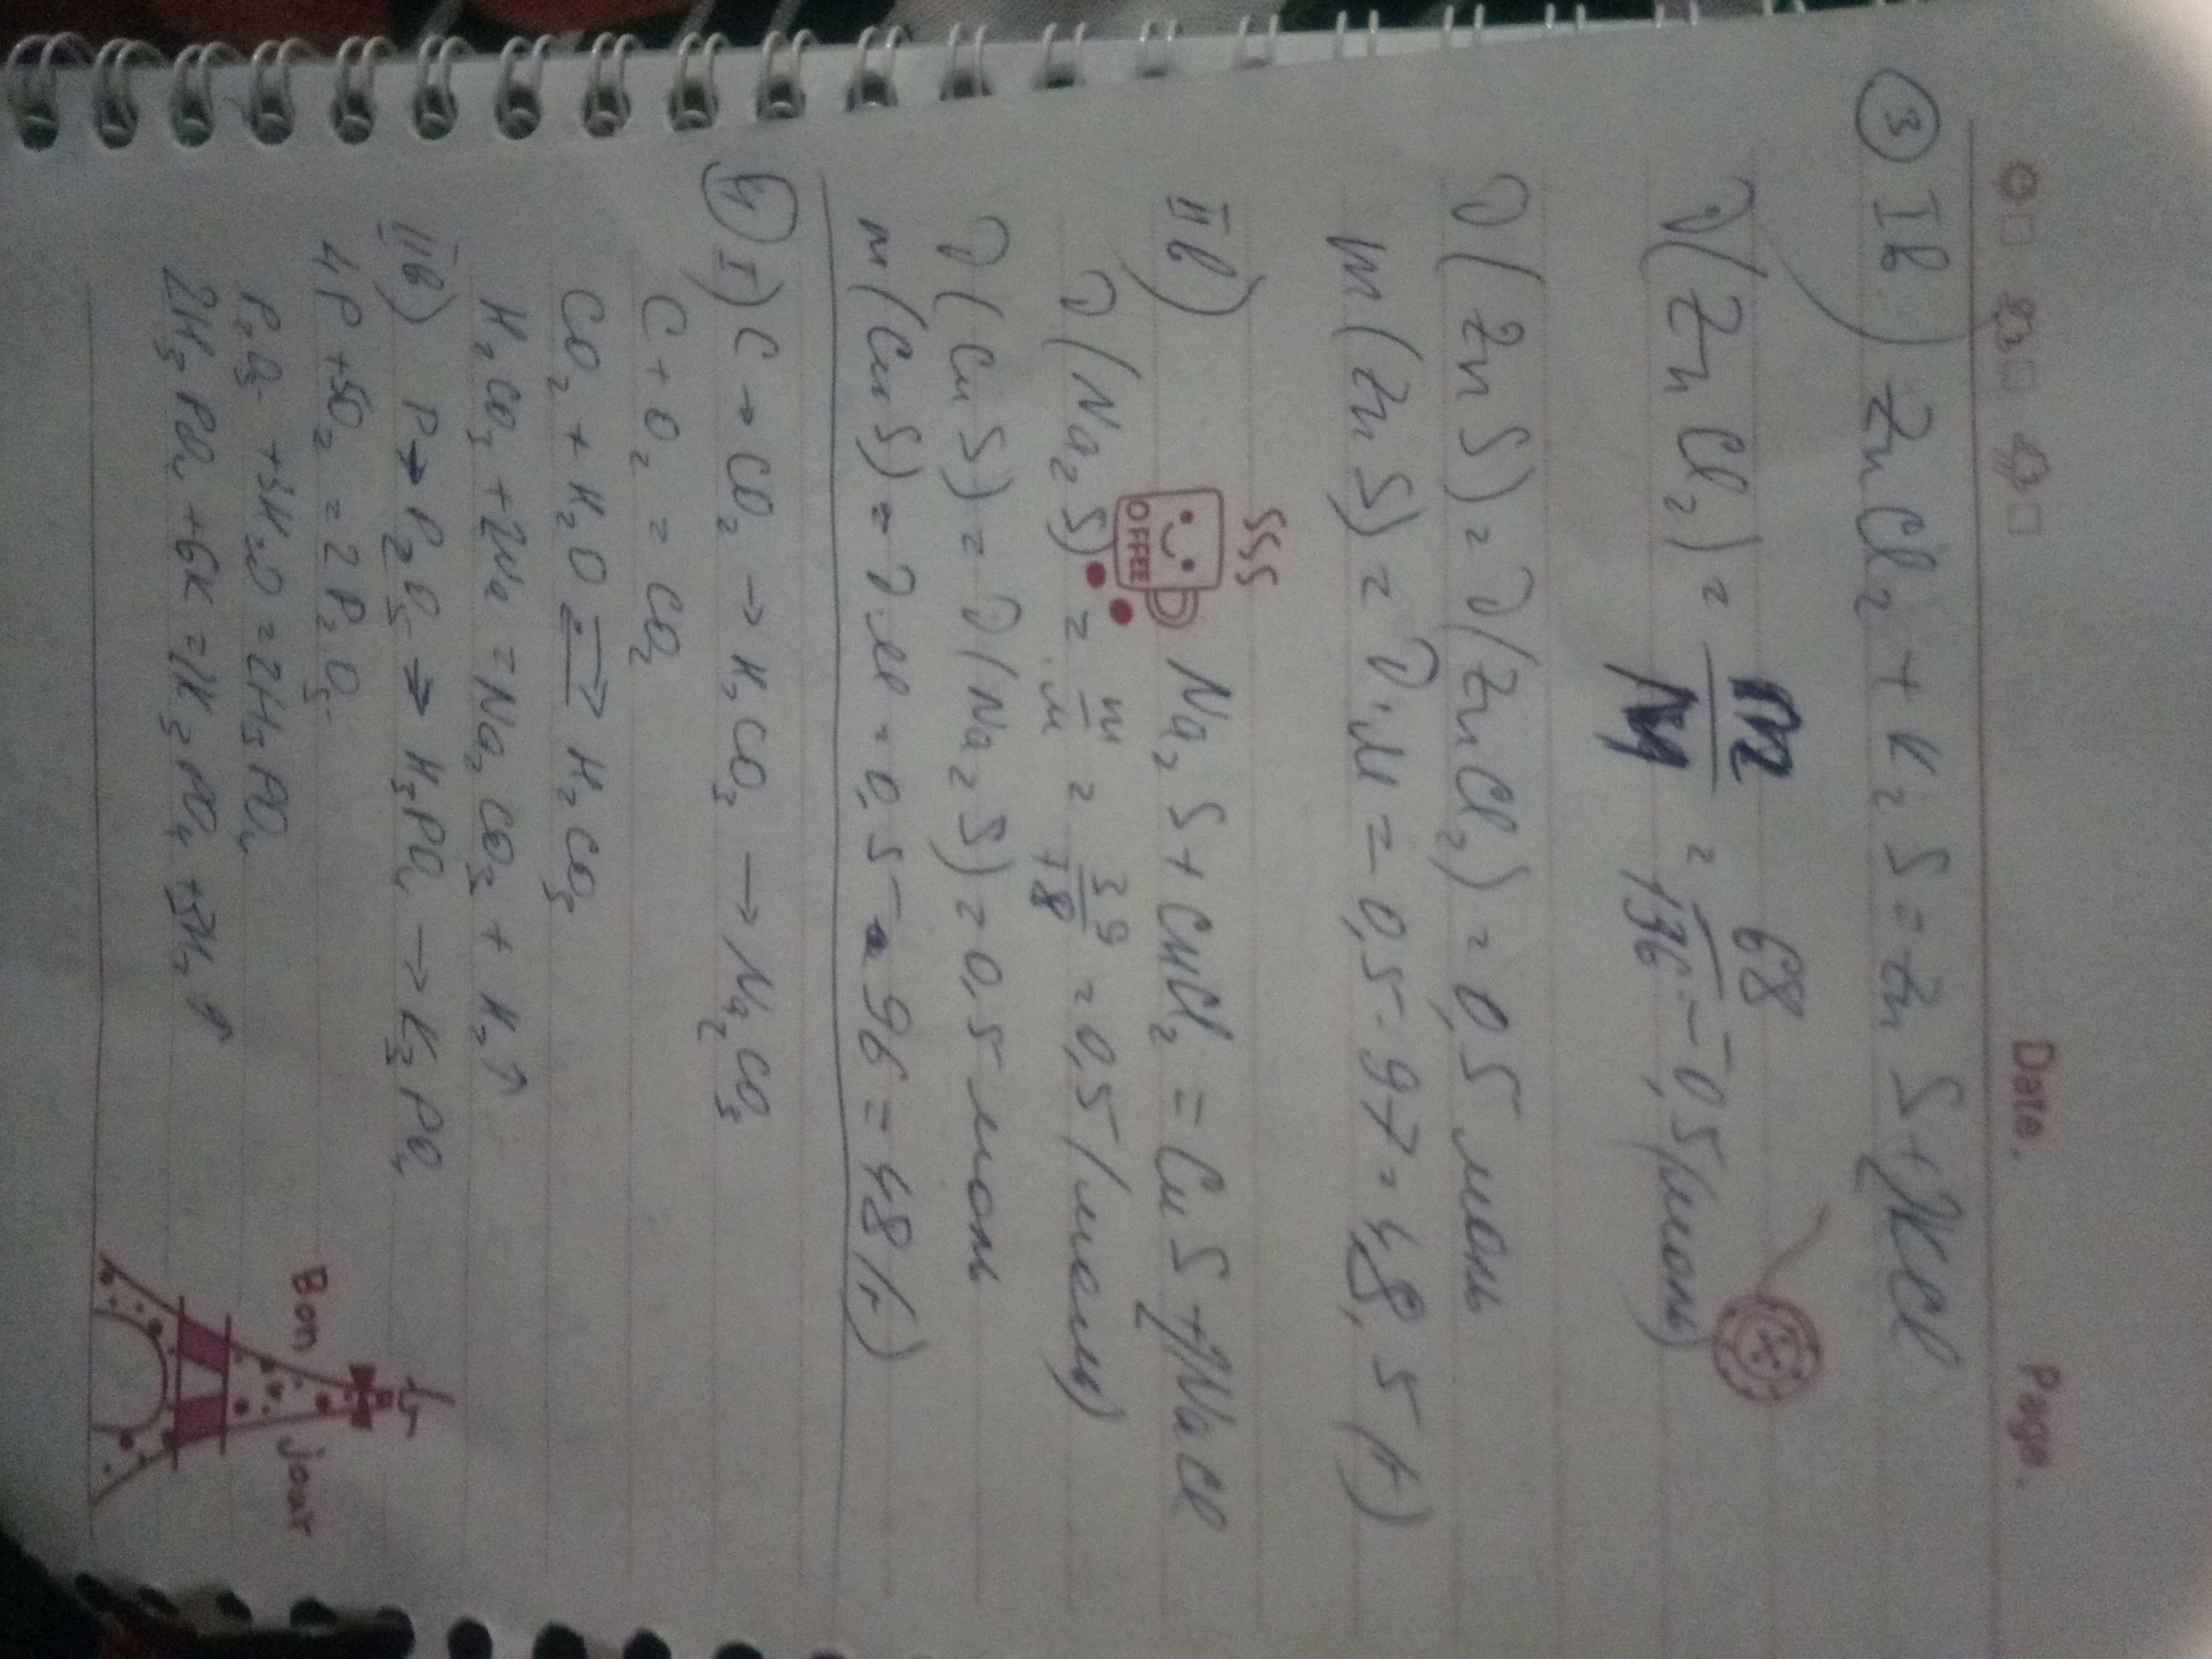 Date. Page.
③ Iв.) ZnCl₂ + K₂S = ZnS + 2KCl
ν(ZnCl₂) = m/M = 68/136 = 0,5 (моль)
ν(ZnS) = ν(ZnCl₂) = 0,5 моль
m(ZnS) = ν·M = 0,5 · 97 = 48,5 (г)
OFFEE
IIв) Na₂S + CuCl₂ = CuS + 2NaCl
ν(Na₂S) = m/M = 39/78 = 0,5 (моль)
ν(CuS) = ν(Na₂S) = 0,5 моль
m(CuS) = ν·M = 0,5 · 96 = 48 (г)
④ I) C → CO₂ → H₂CO₃ → Na₂CO₃
C + O₂ = CO₂
CO₂ + H₂O ⇄ H₂CO₃
H₂CO₃ + 2Na = Na₂CO₃ + H₂↑
IIв) P → P₂O₅ → H₃PO₄ → K₃PO₄
4P + 5O₂ = 2P₂O₅
P₂O₅ + 3H₂O = 2H₃PO₄
2H₃PO₄ + 6K = 2K₃PO₄ + 3H₂↑
Bon jour